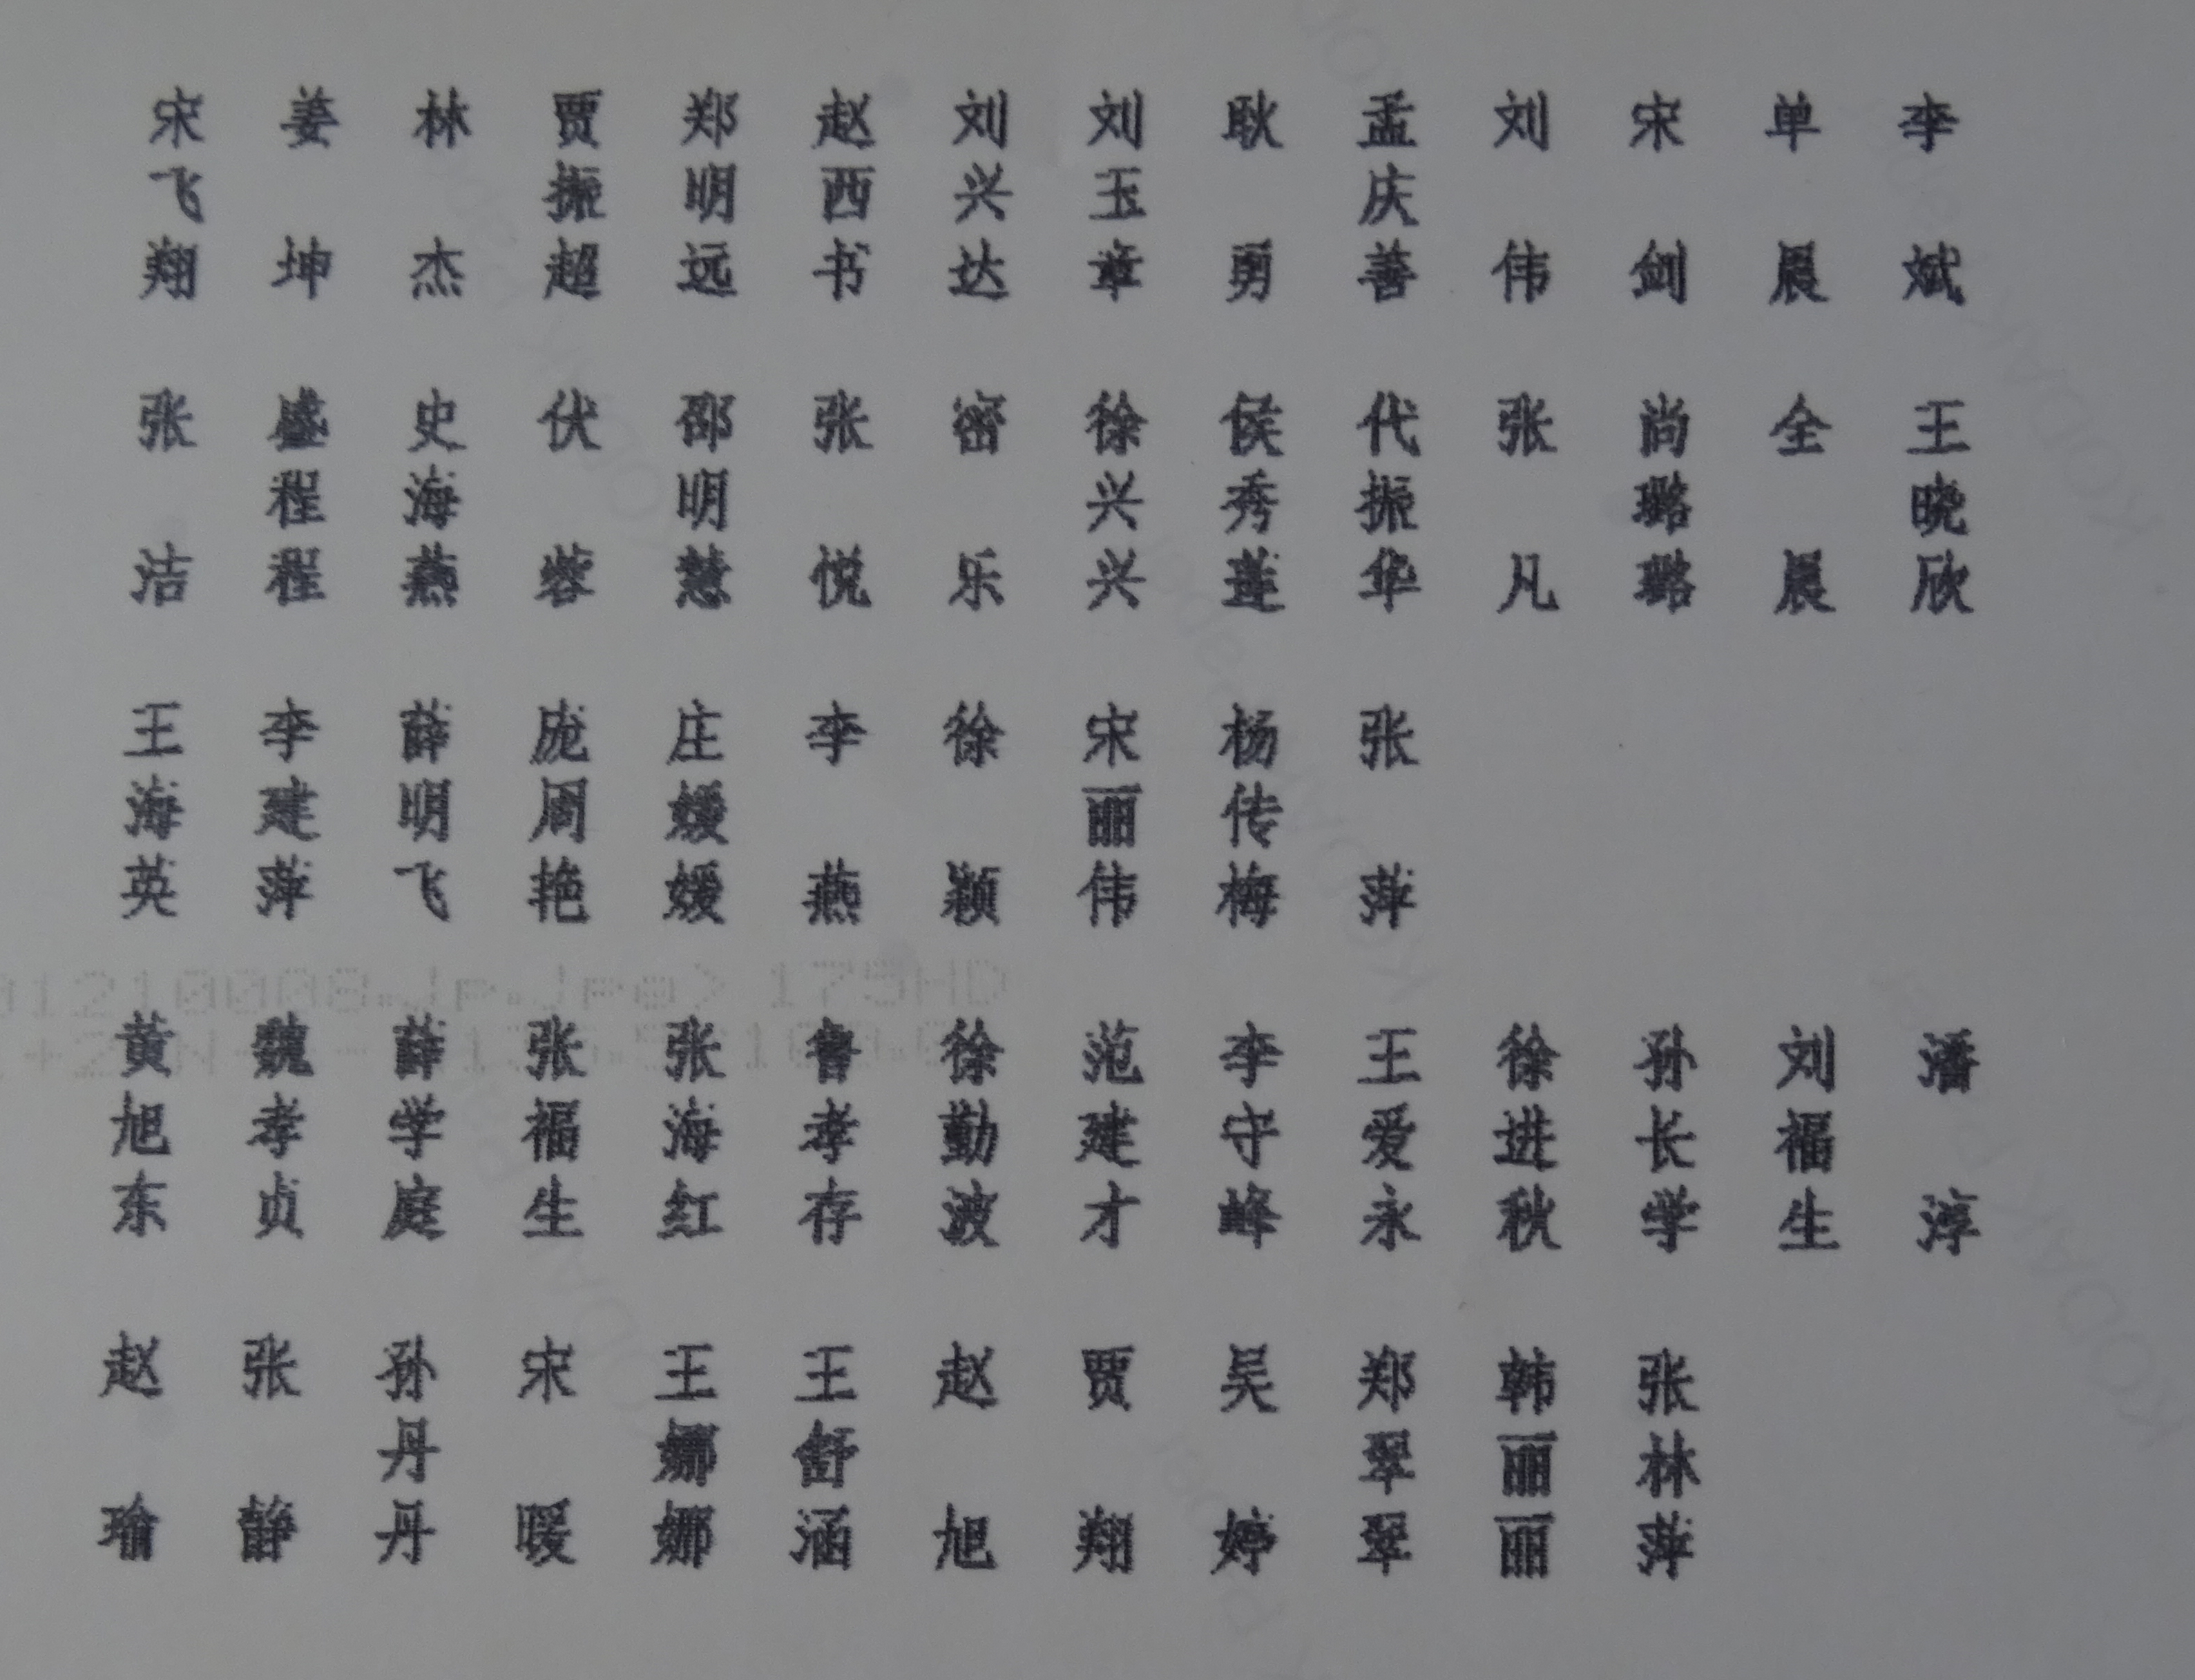 宋飞翔 姜坤 林杰 贾振超 郑明远 赵西书 刘兴达 刘玉章 耿勇 孟庆善 刘伟 宋剑 单晨 李斌
张洁 盛程程 史海燕 伏蓉 邵明慧 张悦 密乐 徐兴兴 侯秀莲 代振华 张凡 尚璐璐 全晨 王晓欣
王海英 李建萍 薛明飞 庞周艳 庄媛媛 李燕 徐颖 宋丽伟 杨传梅 张萍
黄旭东 魏孝贞 薛学庭 张福生 张海红 鲁孝存 徐勤波 范建才 李守峰 王爱永 徐进秋 孙长学 刘福生 潘淳
赵瑜 张静 孙丹丹 宋暖 王娜娜 王舒涵 赵旭 贾翔 吴婷 郑翠翠 韩丽丽 张林萍